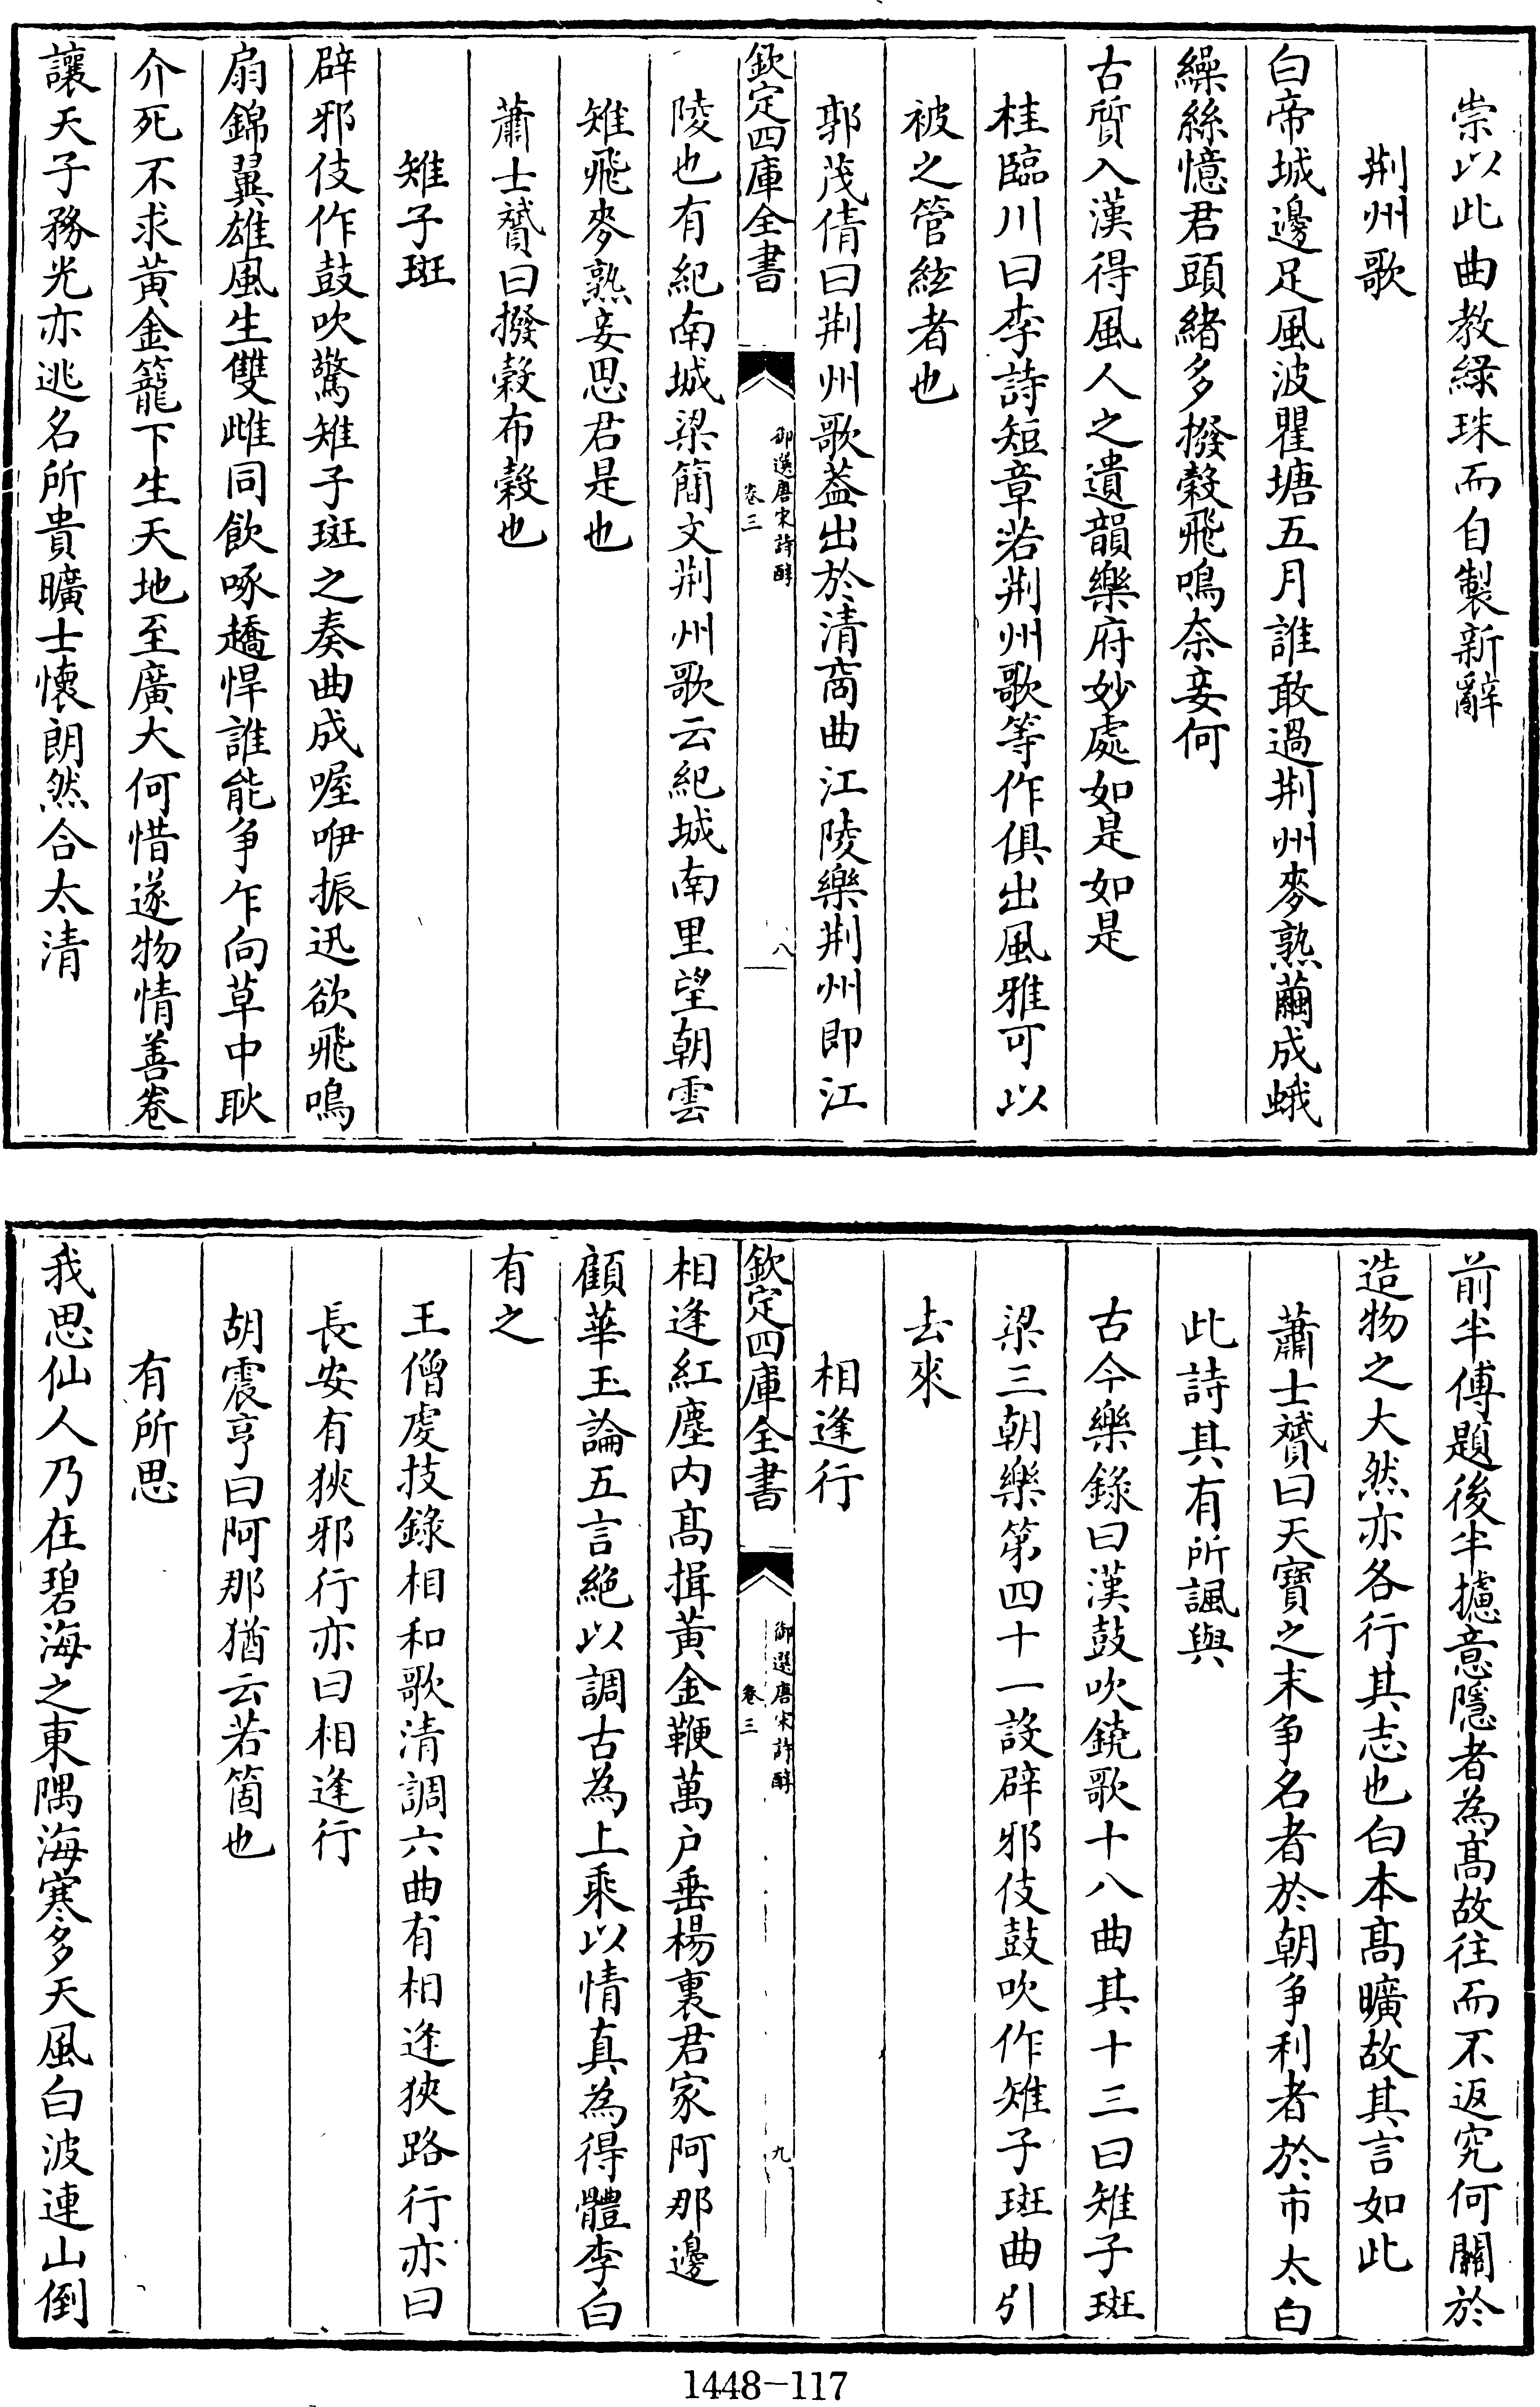 崇以此曲教綠珠而自製新辭
荆州歌
白帝城邊足風波瞿塘五月誰敢過荆州麥熟繭成蛾
繰絲憶君頭緒多撥穀飛鳴奈妾何
古質入漢得風人之遺韻樂府妙處如是如是
桂臨川曰李詩短章若荆州歌等作俱出風雅可以
被之管絃者也
郭茂倩曰荆州歌葢出於清商曲江陵樂荆州即江
欽定四庫全書
御選唐宋詩醇
卷三
八
陵也有紀南城梁簡文荆州歌云紀城南里望朝雲
雉飛麥熟妾思君是也
蕭士贇曰撥穀布穀也
雉子斑
辟邪伎作鼓吹驚雉子斑之奏曲成喔咿振迅欲飛鳴
扇錦翼雄風生雙雌同飲啄趫悍誰能争乍向草中耿
介死不求黄金籠下生天地至廣大何惜遂物情善卷
讓天子務光亦逃名所貴曠士懷朗然合太清
前半傅題後半攄意隱者為髙故往而不返究何關於
造物之大然亦各行其志也白本髙曠故其言如此
蕭士贇曰天寶之末争名者於朝争利者於市太白
此詩其有所諷與
古今樂錄曰漢鼓吹鐃歌十八曲其十三曰雉子斑
梁三朝樂第四十一設辟邪伎鼓吹作雉子斑曲引
去來
相逢行
欽定四庫全書
御選唐宋詩醇
卷三
九
相逢紅塵内髙揖黄金鞭萬户垂楊裏君家阿那邊
顧華玉論五言絶以調古為上乘以情真為得體李白
有之
王僧虔技錄相和歌清調六曲有相逢狹路行亦曰
長安有狹邪行亦曰相逢行
胡震亨曰阿那猶云若箇也
有所思
我思仙人乃在碧海之東隅海寒多天風白波連山倒
1448-117